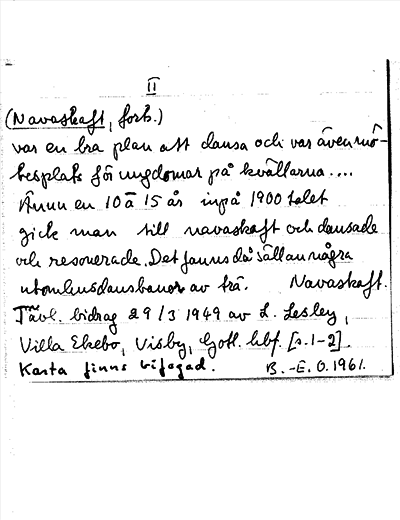 II
(Navaskaft, forts.)
var en bra plan att dansa och var även mö-
tesplats för ungdomar på kvällarna....
Ännu en 10 à 15 år inpå 1900 talet
gick man till navaskaft och dansade
och resonerade. Det fanns då sällan några
utomhusdansbanor av trä. Navaskaft.
Tävl. bidrag 29/3 1949 av L. Lesley,
Villa Ekebo, Visby, Gotl. hbf. [s.1-2].
Karta finns bifogad. B.-E. O. 1961.